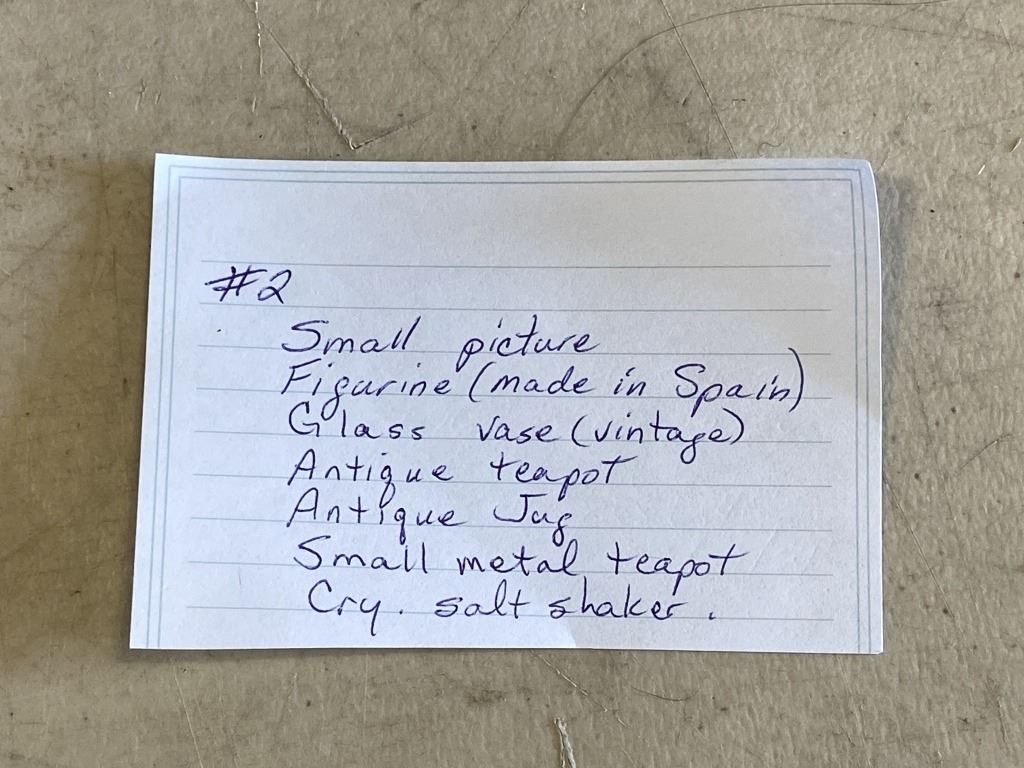 #2
Small picture
Figurine (made in Spain)
Glass vase (vintage)
Antique teapot
Antique Jug
Small metal teapot
Cry. salt shaker.